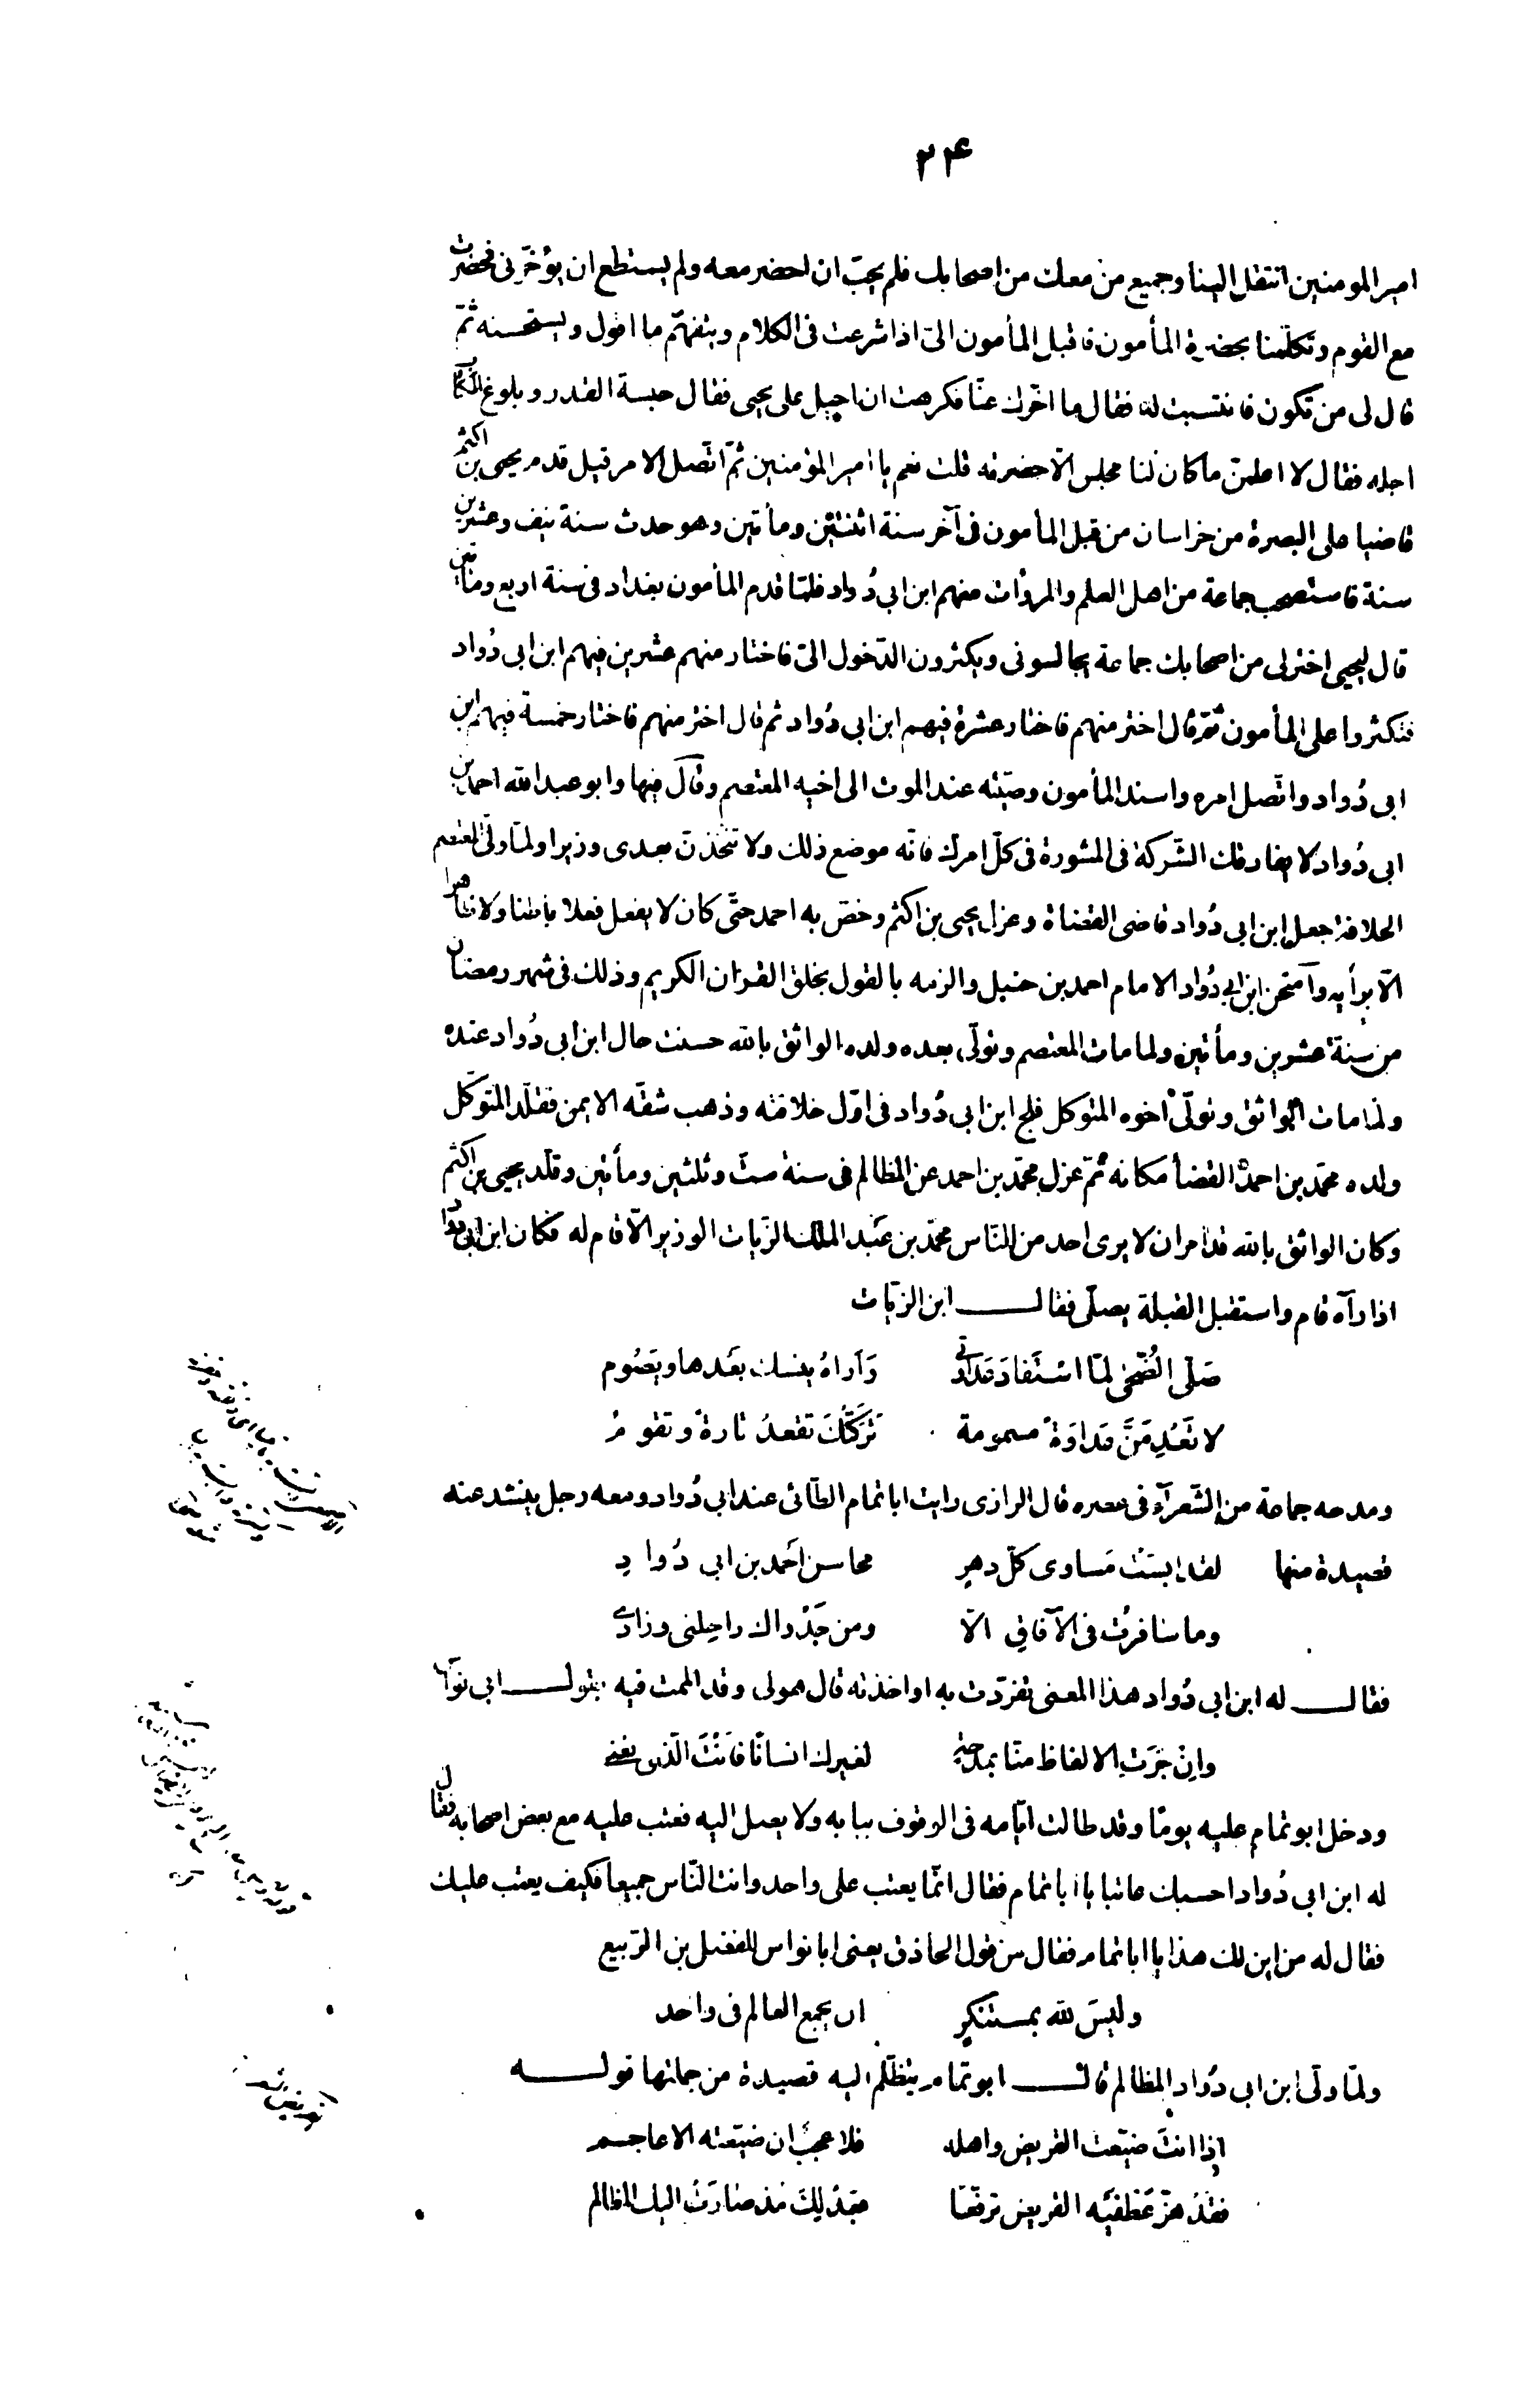 ٢٤
امير المومنين انتقل الينا وجميع من معك من اصحابك فلم يحبّ ان احضر معه ولم يستطع ان يؤخّرنى فحضرت
مع القوم وتكلّمنا بحضرة المأمون فاقبل المأمون الىّ اذا شرعت فى الكلام ويتفهّم ما اقول ويستحسنه ثمّ
قال لى من تكون فانتسبت له فقال ما اخّرك عنّا فكرهت ان احيل على يحيى فقال حبسة القدر وبلوغ الكتاب
اجله فقال لا اعلمنّ ما كان لنا مجلس الّا حضرته قلت نعم يا امير المؤمنين ثمّ اتّصل الامر قيل قدم يحيى بن اكثم
قاضيا على البصرة من خراسان من قبل المأمون فى آخر سنة اثنتين ومأتين وهو حدث سنة نيف وعشرين
سنة فاستصحب جماعة من اهل العلم والمروّات منهم ابن ابى دُواد فلمّا قدم المأمون بغداد فى سنة اربع ومأتين
قال ليحيى اختر لى من اصحابك جماعة يجالسونى ويكثرون الدّخول الىّ فاختار منهم عشرين فيهم ابن ابى دُواد
فتكثروا على المأمون ثمّ قال اختر منهم فاختار عشرة فيهم ابن ابى دُواد ثم قال اختر منهم فاختار خمسة فيهم ابن
ابى دُواد واتّصل امره واسند المأمون وصيّته عند الموت الى اخيه المعتصم وقال فيها وابو عبد الله احمد بن
ابى دُواد لا يفارقك الشّركة فى المشورة فى كلّ امرك فانّه موضع ذلك ولا تتّخذنّ بعدى وزيرا ولمّا ولّى المعتصم
الخلافة جعل ابن ابى دُواد قاضى القضاة وعزل يحيى بن اكثم وخصّ به احمد حتّى كان لا يفعل فعلا باطنا ولا ظاهرا
الّا برأيه وامتحن ابن ابى دُواد الامام احمد بن حنبل والزمه بالقول بخلق القرآن الكريم وذلك فى شهر رمضان
من سنة عشرين ومأتين ولما مات المعتصم وتولّى بعده ولده الواثق بالله حسنت حال ابن ابى دُواد عنده
ولمّا مات الواثق وتولّى اخوه المتوكل فلج ابن ابى دُواد فى اوّل خلافته وذهب شقّه الايمن فقلّد المتوكّل
ولده محمّد بن احمد القضأ مكانه ثمّ عزل محمّد بن احمد عن المظالم فى سنة ستّ وثلثين ومأتين وقلّد يحيى بن اكثم
وكان الواثق بالله قد امر ان لا يرى احد من النّاس محمّد بن عبد الملك الزّيات الوزير الّا قام له فكان ابن ابى دُواد
اذا رآه قام واستقبل القبلة يصلّى فقال ابن الزيّات
صَلّى الضُّحىٰ لمّا اسْتَفادَ عَداوتى وَاَراهُ ينسك بَعْدها ويَصُوم
لا تَعْدِمَنَّ عَداوَةً مسمومة تَرَكَتْكَ تقعدُ تارةً وتقومُ
ومدحه جماعة من الشّعرآء فى عصره قال الرازى رايت ابا تمام الطّائى عند ابى دُواد ومعه رجل ينشد عنه
قصيدة منها لقد انسَتْ مَساوى كلّ دهرٍ محاسن احْمد بن ابى دُوادِ
وما سافرْت فى الآفاقِ الّا ومن جَدْواك راحِلتى وزادى
فقال له ابن ابى دُواد هذا المعنى تفرّدت به او اخذته قال هو لى وقد الممت فيه بقول ابى نواس
وانْ جَرَتِ الالفاظ منّا بمدحةٍ لغيرك انسانًا فاَنْتَ الّذى نعنى
ودخل ابو تمام عليه يومًا وقد طالت ايّامه فى الوقوف ببابه ولا يصل اليه فعتب عليه مع بعض اصحابه فقال
له ابن ابى دُواد احسبك عاتبا يا ابا تمام فقال انّما يعتب على واحد وانت النّاس جميعا فكيف يعتب عليك
فقال له من اين لك هذا يا ابا تمام فقال من قول الحاذق يعنى ابا نواس للفضل بن الرّبيع
وليسَ لله بمستنكرٍ ان يجمع العالم فى واحد
ولمّا ولّى ابن ابى دُواد المظالم قال ابو تمام يتظلّم اليه قصيدة من جملتها قوله
اِذا انتَ ضيّعت القريض واهله فلا عجبًا ان ضيّعته الاعاجم
فقَدْ هزّ عَطفَيْه القريض ترفّعًا بعَدْلِكَ مُذ صَارَتْ اليك المظالم